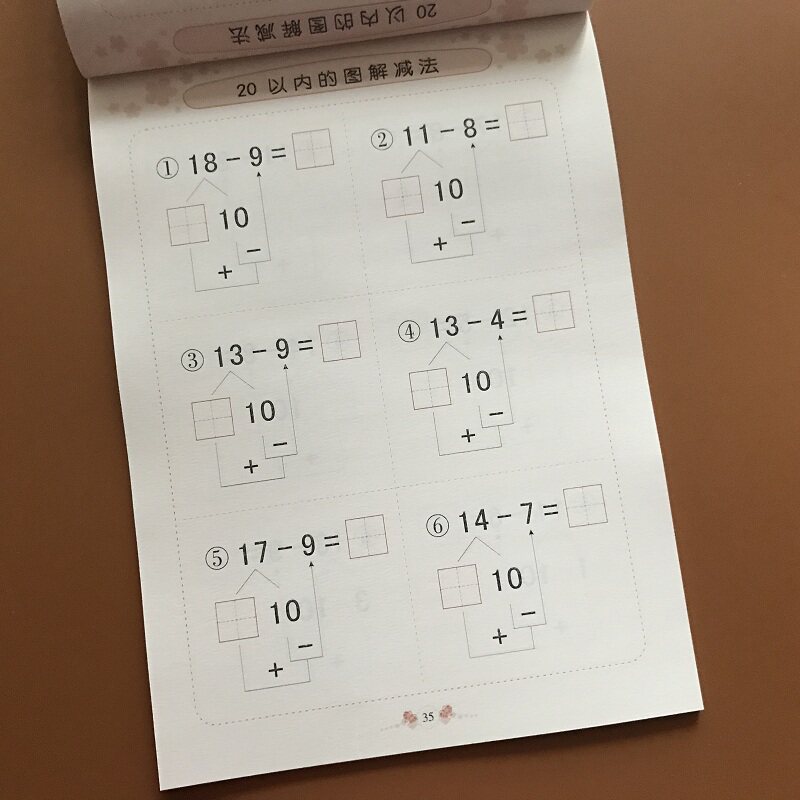 20 以内的图解减法
20 以内的图解减法
① 18 - 9 =
10
-
+
② 11 - 8 =
10
-
+
③ 13 - 9 =
10
-
+
④ 13 - 4 =
10
-
+
⑤ 17 - 9 =
10
-
+
⑥ 14 - 7 =
10
-
+
35